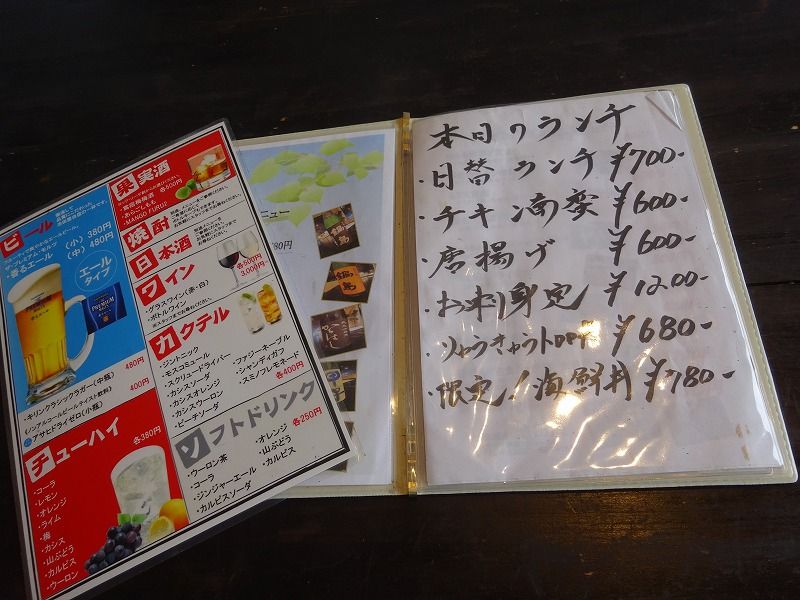 本日のランチ
・日替ランチ ¥700-
・チキン南蛮 ¥600-
・唐揚げ ¥600-
・お刺身定 ¥1200-
・¥680-
・限定!海鮮丼 ¥780-
ニュー
780円
ビール
(小) 380円
ザ・プレミアム・モルツ
・香るエール (中) 480円
エールタイプ
PREMIUM
480円
・キリンクラシックラガー(中瓶)
400円
(ノンアルコールビールテイスト飲料)
・アサヒドライゼロ(小瓶)
チューハイ
各380円
・コーラ
・レモン
・オレンジ
・ライム
・梅
・カシス
・山ぶどう
・カルピス
・ウーロン
果実酒
各500円
・あらごしもも
焼酎
日本酒
ワイン
各500円
・グラスワイン(赤・白)
3,000円~
・ボトルワイン
カクテル
・ジントニック
・モスコミュール
・スクリュードライバー
・カシスソーダ
・カシスオレンジ
・カシスウーロン
・ピーチソーダ
・ファジーネーブル
・シャンディガフ
・スミノフレモネード
各400円
ソフトドリンク
各250円
・ウーロン茶
・コーラ
・ジンジャーエール
・カルピスソーダ
・オレンジ
・山ぶどう
・カルピス